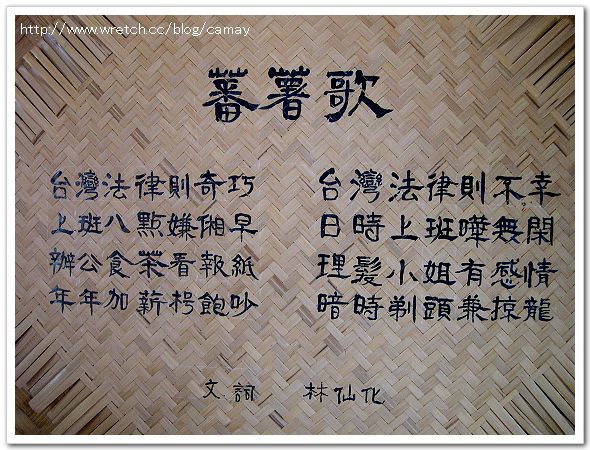 http://www.wretch.cc/blog/camay
蕃薯歌
台灣法律則奇巧
上班八點嫌早
辦公食茶看報紙
年年加薪枵飽吵
台灣法律則不幸
日時上班嘩無閑
理髮小姐有感情
暗時剃頭兼掠龍
文詞 林仙化